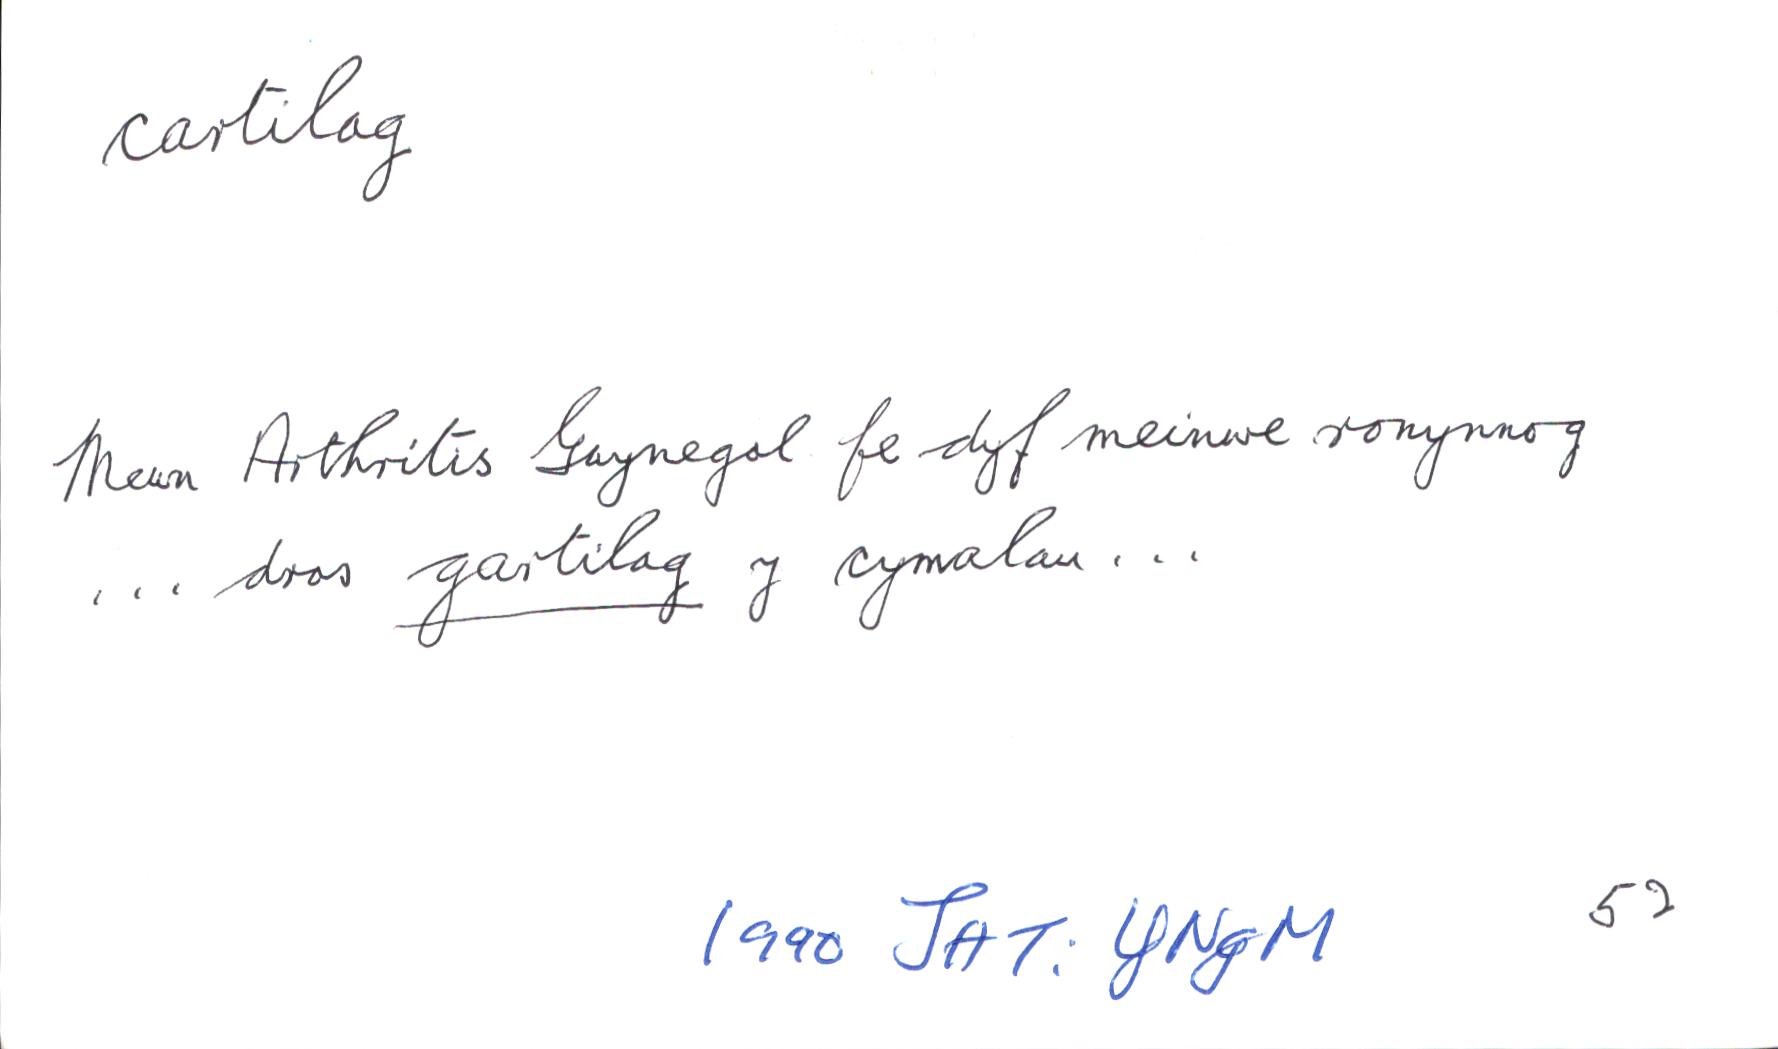 cartilag
Mewn Arthritis Gwynegol fe dyf meinwe ronynnog
... dros gartilag y cymalau...
1990 JHT: YNgM
52